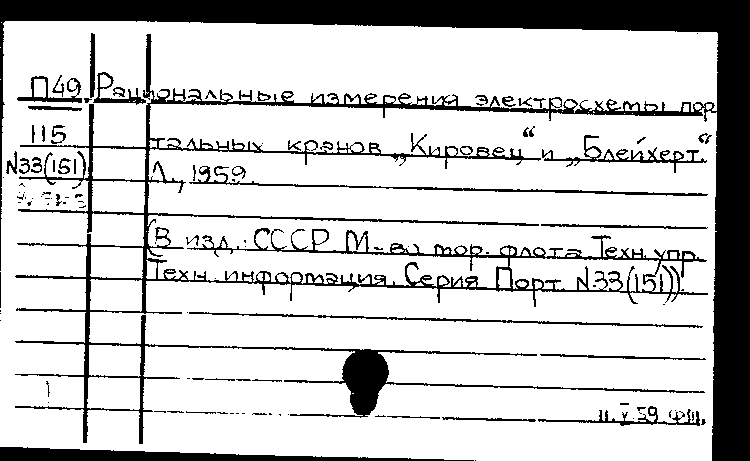 П49 Рациональные измерения электросхемы пор
115 тальных кранов „Кировец“ и „Блейхерт“
N33(151) Л., 1959
(В изд.: СССР М-во мор. флота Техн. упр.
Техн. информация. Серия Порт. N33(151))
11.V.59